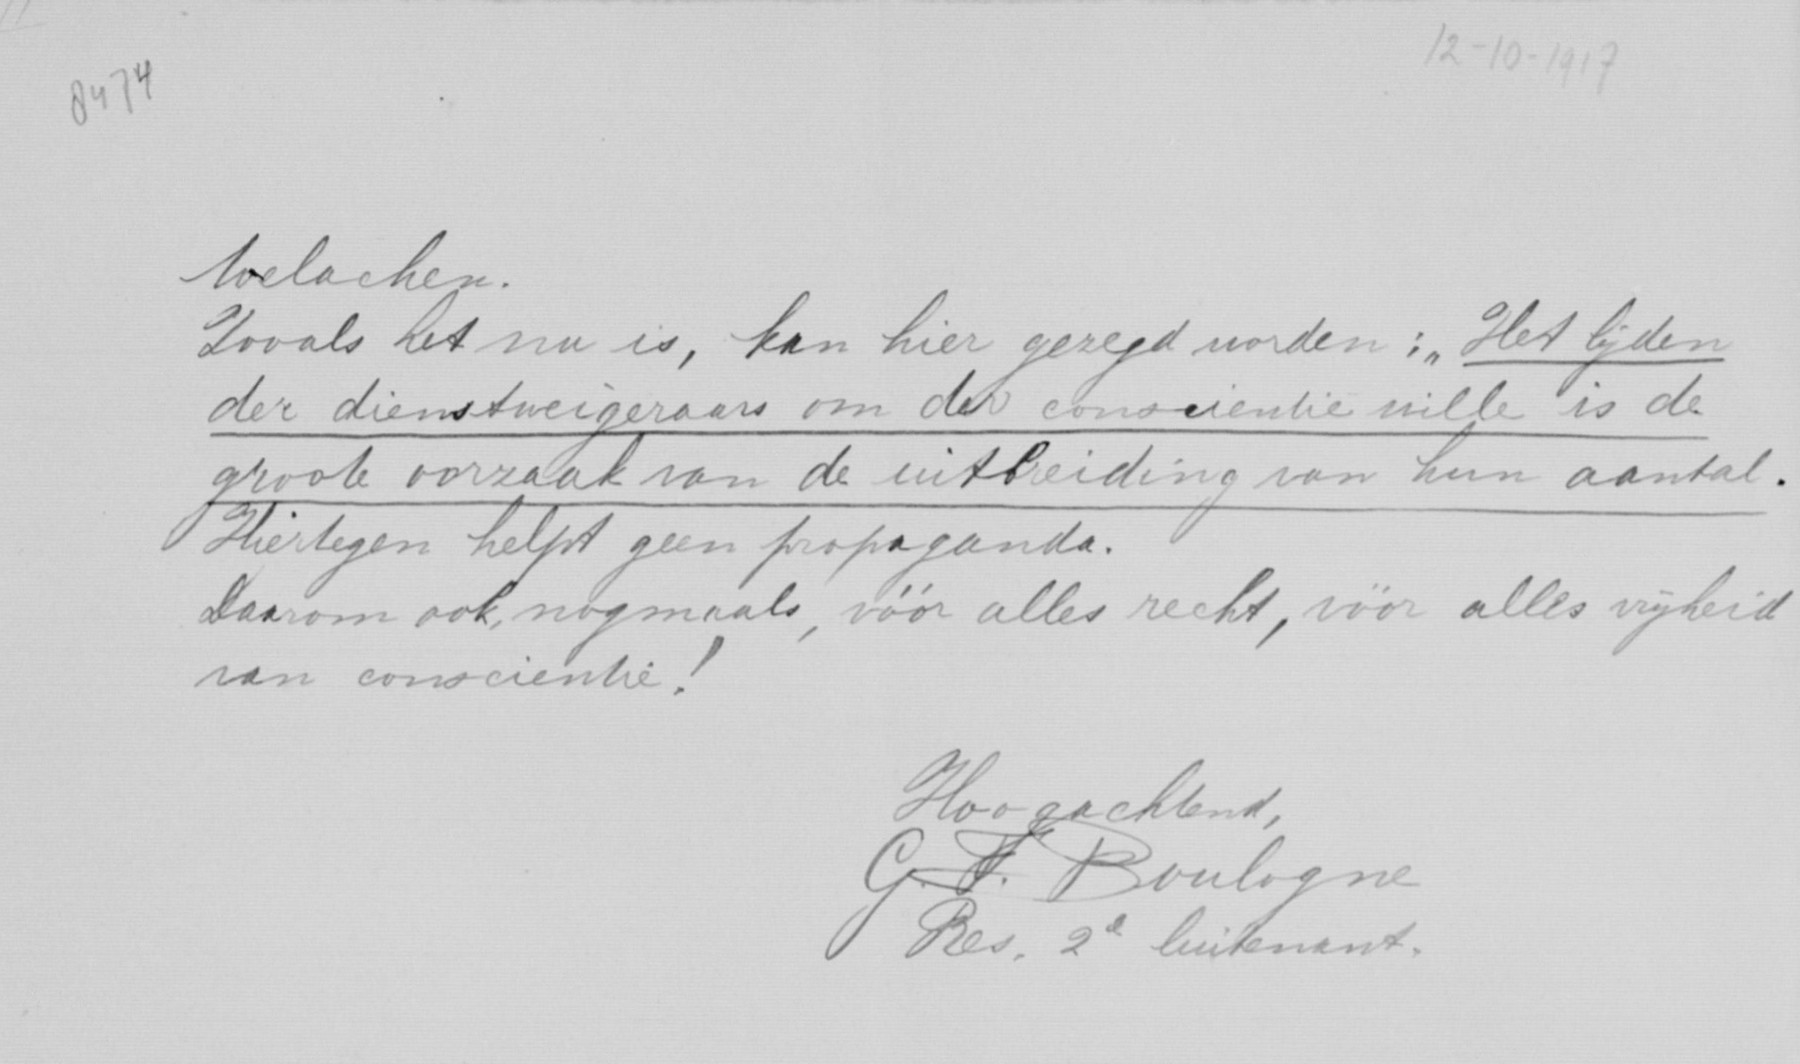 12-10-1917
8474
toelachen.
Zooals het nu is, kan hier gezegd worden: „Het lijden
der dienstweigeraars om der conscientie wille is de
groote oorzaak van de uitbreiding van hun aantal.
Hiertegen helpt geen propaganda.
Daarom ook, nogmaals, vóór alles recht, vóór alles vrijheid
van conscientie!
Hoogachtend,
G. F. Boulogne
Res. 2e luitenant.